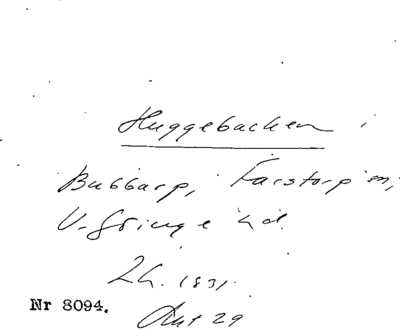 Huggebacken i
Bubbarp, Farstorp sn,
V. Göinge hd.
Lh. 1831.
Akt 29
Nr 8094.